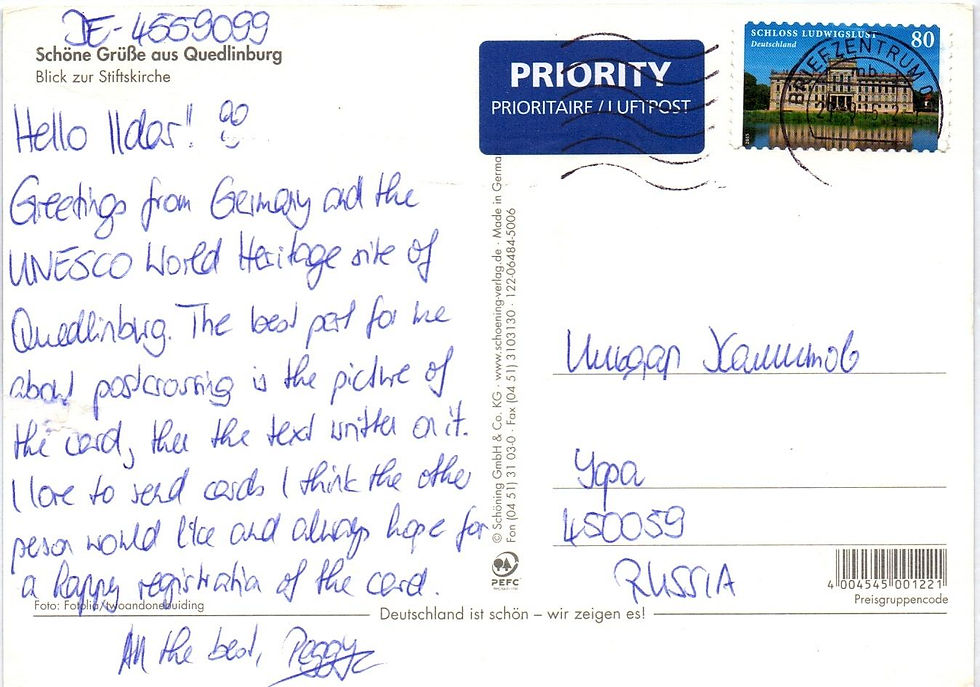 DE-4559099
Schöne Grüße aus Quedlinburg
Blick zur Stiftskirche
Hello Ildar!
Greetings from Germany and the
UNESCO World Heritage site of
Quedlinburg. The best part for me
about postcrossing is the picture of
the card, then the text written on it.
I love to send cards I think the other
person would like and always hope for
a happy registration of the card.
Foto: Fotolia/twoandonebuiding
All the best, Peggy
PRIORITY
PRIORITAIRE / LUFTPOST
SCHLOSS LUDWIGSLUST
Deutschland
80
2015
BRIEFZENTRUM
© Schöning GmbH & Co. KG · www.schoening-verlag.de · Made in Germa
Fon (04 51) 31 03-0 · Fax (04 51) 3103130 · 122-06484-5006
PEFC
Ильдар Халиитов
Уфа
450059
RUSSIA
4 004545 001221
Preisgruppencode
Deutschland ist schön – wir zeigen es!